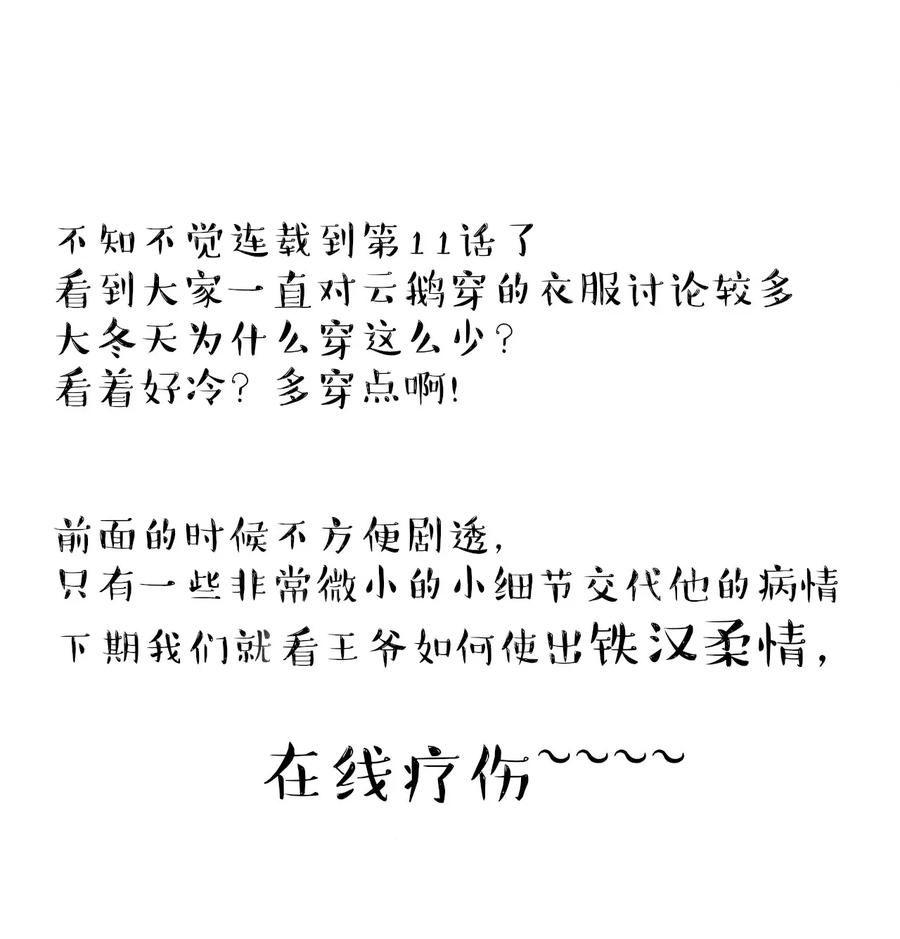 不知不觉连载到第11话了
看到大家一直对云鹅穿的衣服讨论较多
大冬天为什么穿这么少?
看着好冷? 多穿点啊!
前面的时候不方便剧透,
只有一些非常微小的小细节交代他的病情
下期我们就看王爷如何使出铁汉柔情,
在线疗伤~~~~